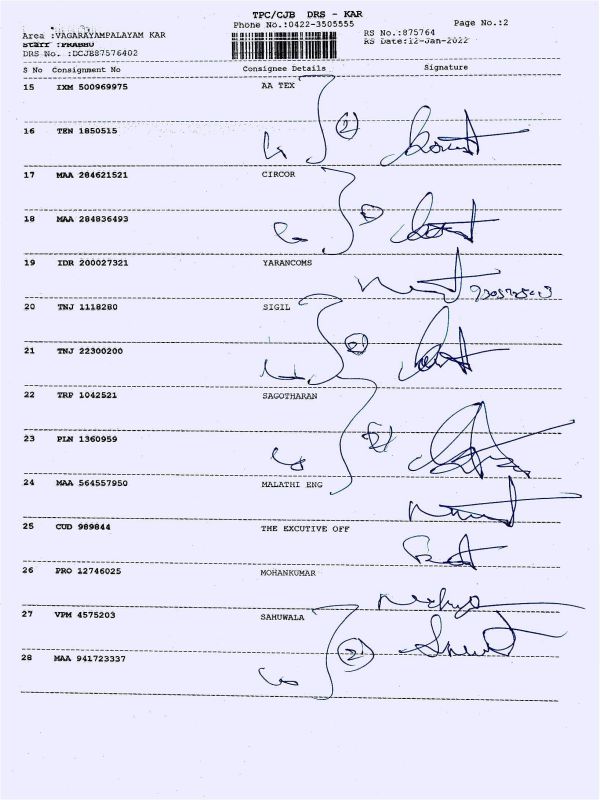 TPC/CJB DRS - KAR
Phone No.:0422-3505555
Page No.:2
Area :VAGARAYAMPALAYAM KAR
RS No.:875764
Staff :PRABHU
RS Date:12-Jan-2022
DRS No. :DCJB87576402
S No Consignment No Consignee Details Signature
15 IXM 500969975 AA TEX
2
16 TEN 1850515
17 MAA 284621521 CIRCOR
18 MAA 284836493
19 IDR 200027321 YARANCOMS
20 TNJ 1118280 SIGIL
21 TNJ 22300200
22 TRP 1042521 SAGOTHARAN
23 PLN 1360959
24 MAA 564557950 MALATHI ENG
25 CUD 989844 THE EXCUTIVE OFF
26 PRO 12746025 MOHANKUMAR
27 VPM 4575203 SAHUWALA
2
28 MAA 941723337